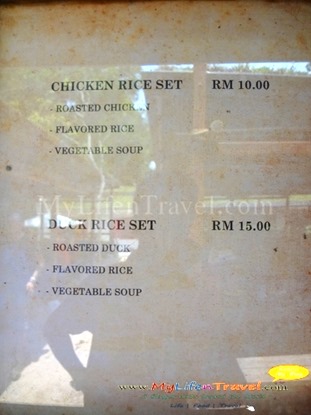 CHICKEN RICE SET RM 10.00
- ROASTED CHICKEN
- FLAVORED RICE
- VEGETABLE SOUP
MyLifenTravel.com
DUCK RICE SET RM 15.00
- ROASTED DUCK
- FLAVORED RICE
- - VEGETABLE SOUP
www.MyLifenTravel.com